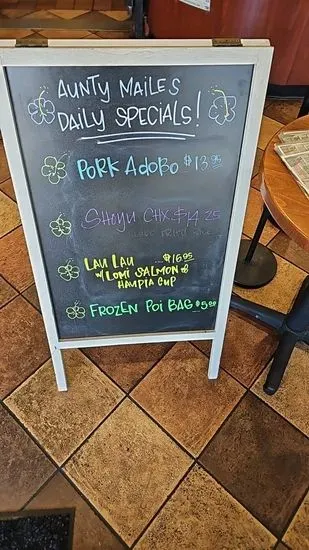 AUNTY MAILE'S
DAILY SPECIALS!
PORK ADOBO $13.95
SHOYU CHX $14.25
FRIED
LAU LAU $16.95
W/ LOMI SALMON &
HAUPIA CUP
FROZEN POI BAG $5.00